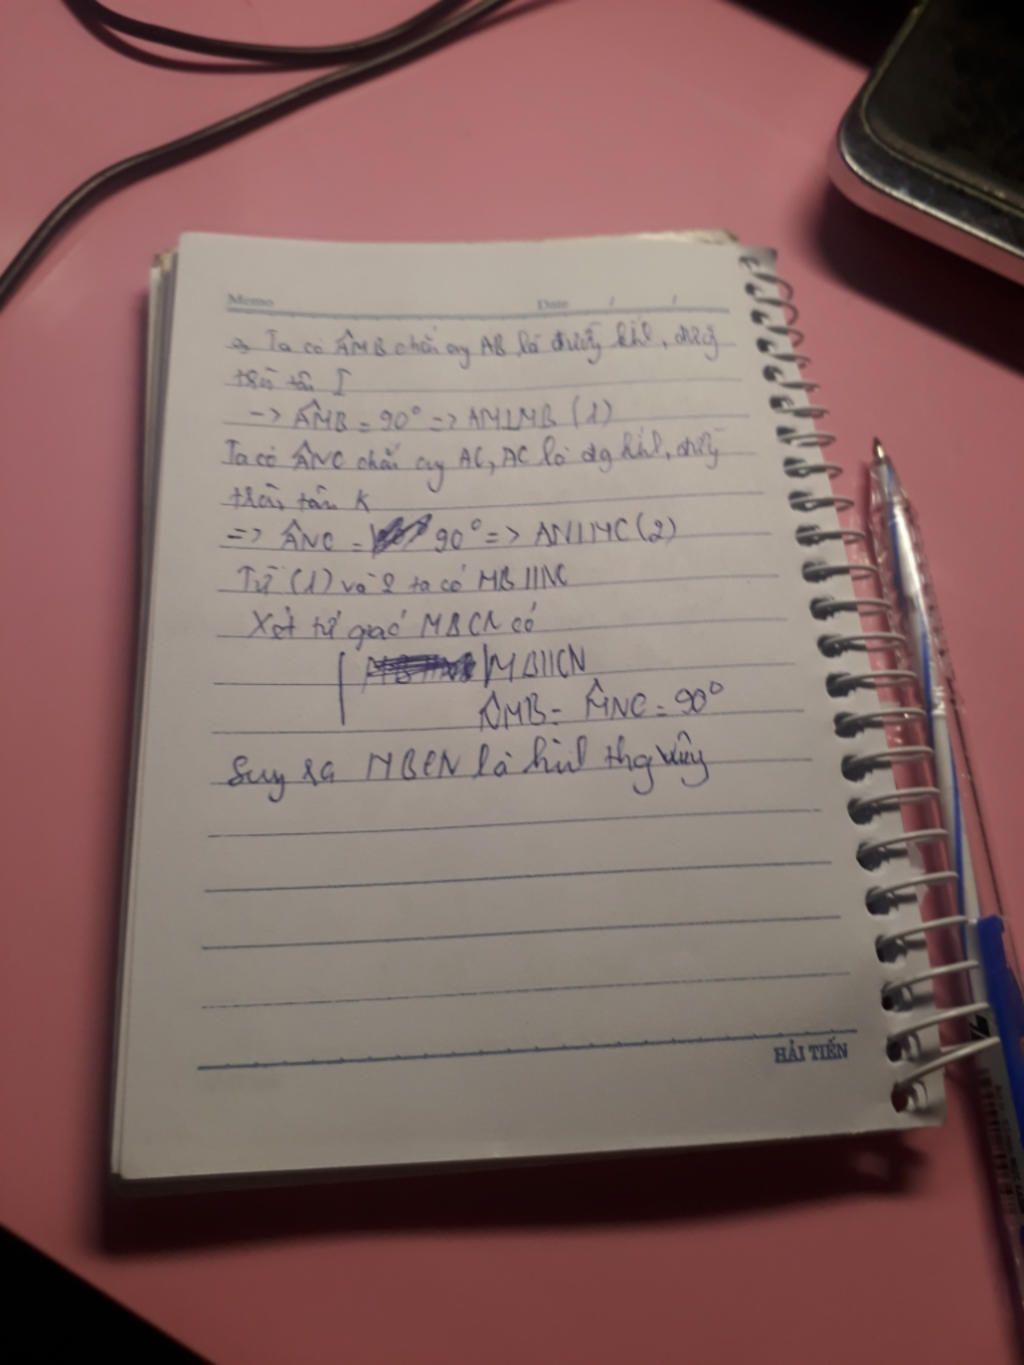 Memo Date / /
a, Ta có ÂMB chắn cung AB là đường kính, đường
tròn tâm I
-> ÂMB = 90° => AM⊥MB (1)
Ta có ÂNC chắn cung AC, AC là đg kính, đường
tròn tâm K
=> ÂNC = 90° => AN⊥MC (2)
Từ (1) và 2 ta có MB//NC
Xét tứ giác MBCN có
MB//CN
ÂMB = M̂NC = 90°
Suy ra MBCN là hình thg vuông
HẢI TIẾN